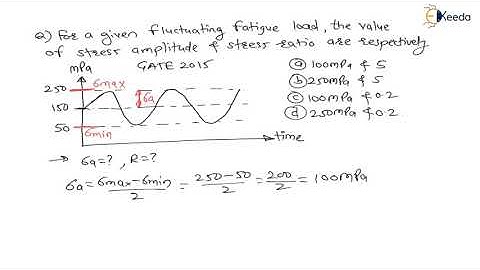 Ekeeda
Q) For a given fluctuating fatigue load, the value
of stress amplitude & stress ratio are respectively
GATE 2015
mPa
250
150
50
σmax
σa
σmin
time
ⓐ 100mPa & 5
ⓑ 250mPa & 5
ⓒ 100mPa & 0.2
ⓓ 250mPa & 0.2
→ σa=? , R=?
σa = σmax-σmin/2 = 250-50/2 = 200/2 = 100mPa